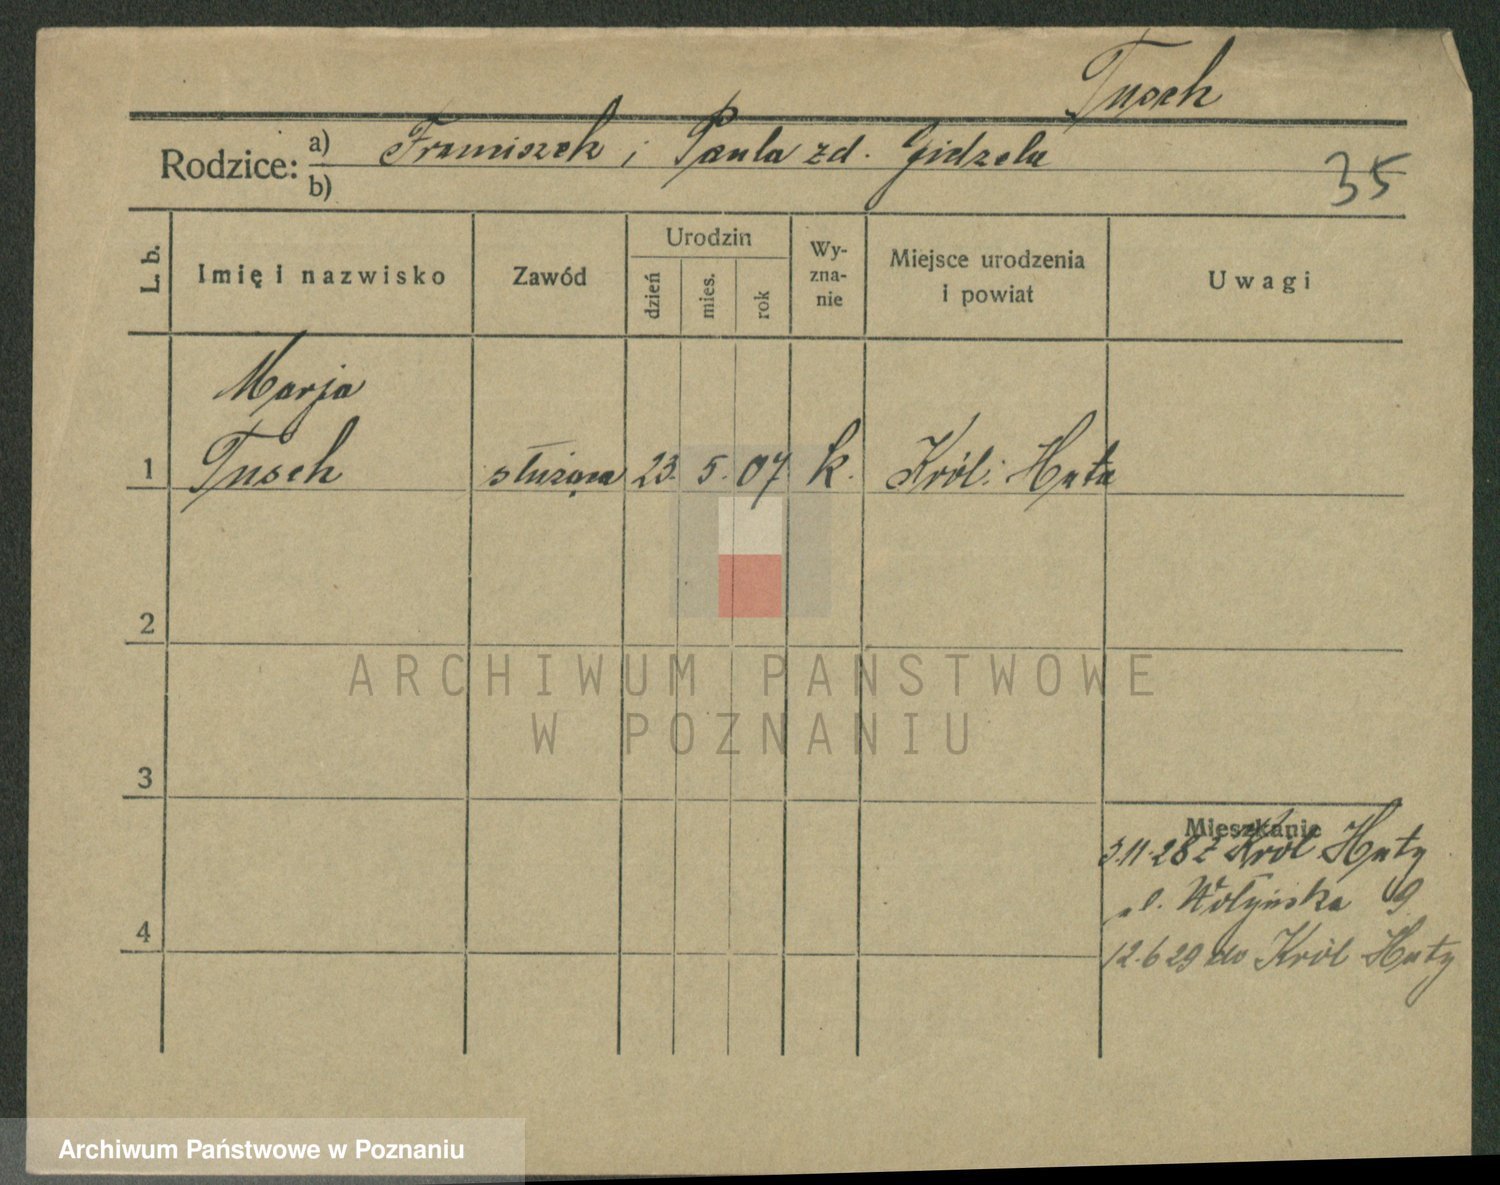 Tusch
Rodzice: a) Franciszek i Paula zd. Gidzela
b)
35
L. b.
Imię i nazwisko
Zawód
Urodzin
dzień
mies.
rok
Wy-
zna-
nie
Miejsce urodzenia
i powiat
Uwagi
Marja
1 Tusch służąca 23. 5. 07. k. Król. Huta
2
ARCHIWUM PAŃSTWOWE
W POZNANIU
3
Mieszkanie
3.11.28 z Król Huty
ul. Wołyńska 9
4
12.6.29 do Król Huty
Archiwum Państwowe w Poznaniu